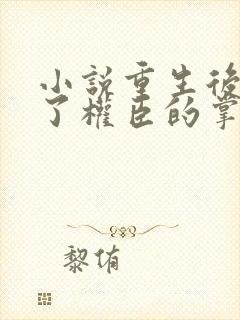 小說重生後
了權臣的掌
黎侑